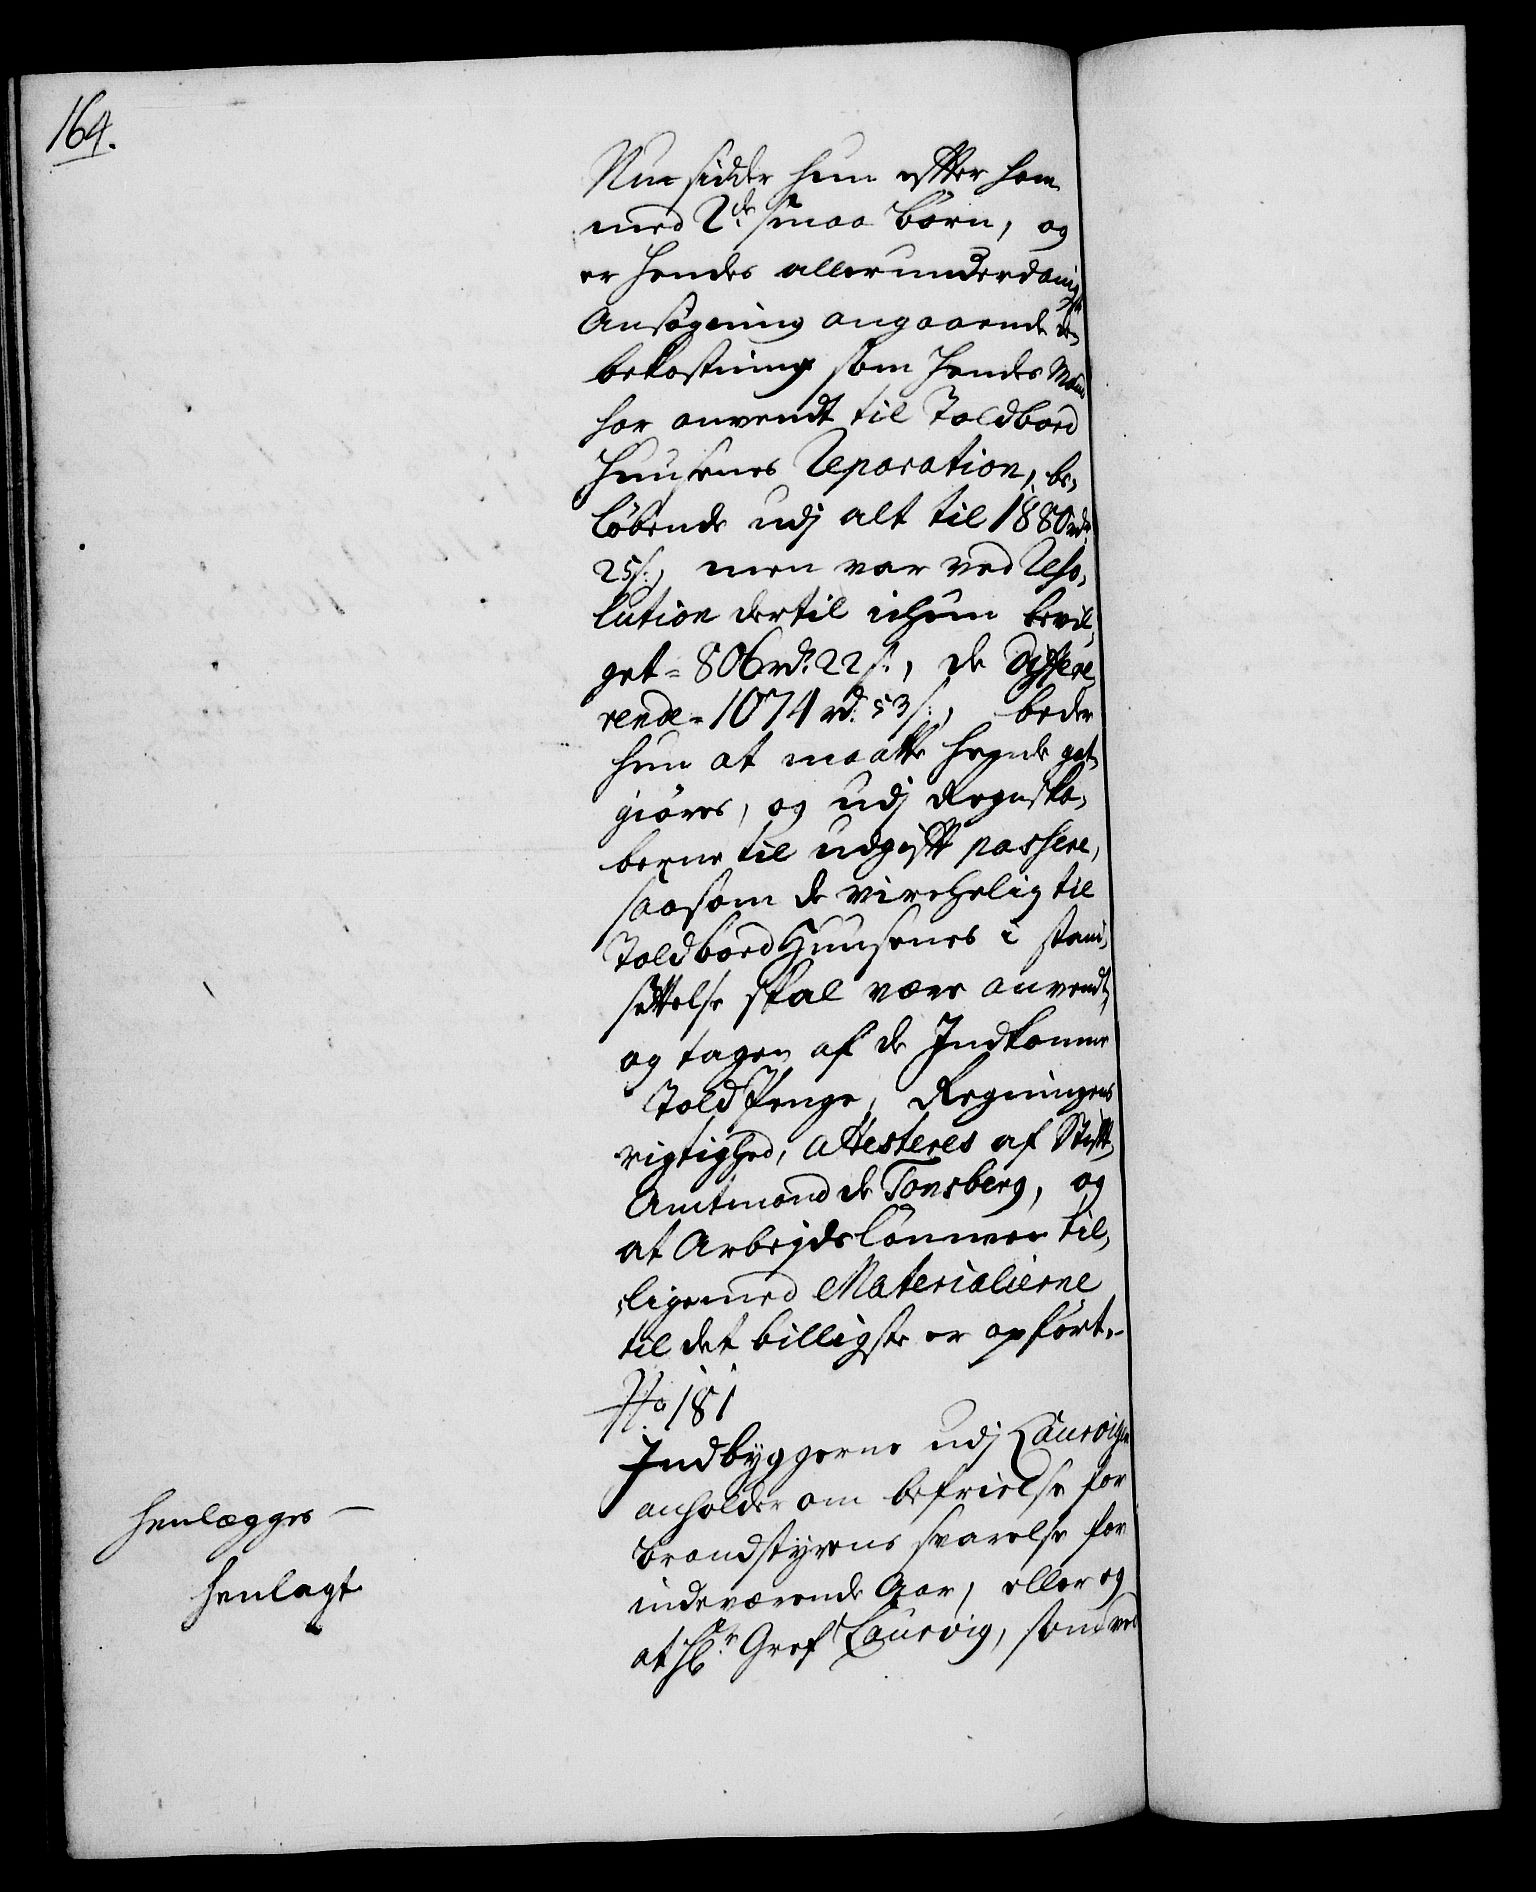 164.
Nu sidder hun efter ham
med 2de smaa børn, og
er hendes allerunderdanigste
Ansøgning angaaende den
bekostning som hendes Mand
har anvendt til Toldboed
Huusenes Reparation, be,
løbende udj alt til 1880 rdr
25 s:, men var ved Reso,
lution dertil ichun bevil,
get = 806 rdr 22 s:, de Differe,
rende = 1074 rd: 53 s:, beder
hun at maatte hende got
giøres, og udj Regnska,
berne til udgift passere,
saasom de virchelig til
Toldboed Huusenes i stand,
settelse skal være anvendt,
og tagen af de Indkomne
Told Penge, Regningens
rigtighed, attesteres af Stift
Amtmand de Tonsberg, og
at Arbejdslønnen til,
ligemed Materialierne
til det billigste er opført.
No 181
Indbyggerne udj Laurvigen
anholder om befrielse for
brandstyrens svarelse for
indeværende Aar, eller og
at Hr Gref Laurvig, som ved
henlægges –
henlagt